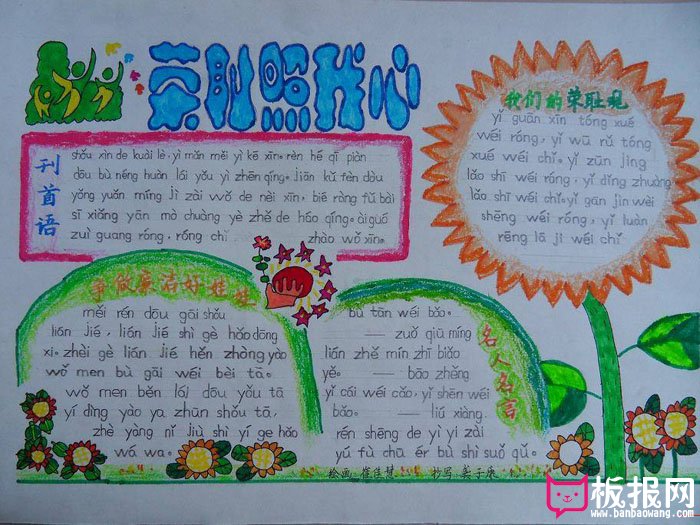 荣耻照我心
刊首语
shǒu xìn de kuài lè, yì mǎn měi yì kē xīn. rèn hé qī piàn
dōu bù néng huàn lái yǒu yì zhēn qíng. jiān kǔ fèn dòu
yǒng yuǎn míng jì zài wǒ de nèi xīn, bié ràng fǔ bài
sī xiǎng yān mò chuàng yè zhě de háo qíng. ài guó
zuì guang róng, róng chǐ zhào wǒ xīn.
我们的荣耻观
yǐ guān xīn tóng xué
wéi róng, yǐ wū rǔ tóng
xué wéi chǐ. yǐ zūn jìng
lǎo shī wéi róng, yǐ dǐng zhuàng
lǎo shī wéi chǐ. yǐ gān jìn wèi
shēng wéi róng, yǐ luàn
rēng lā jī wéi chǐ
争做廉洁好娃娃
měi rén dōu gāi shǒu
lián jié, lián jié shì gè hǎo dōng
xi. zhèi gè lián jié hěn zhòng yào
wǒ men bù gāi wéi bèi tā.
wǒ men běn lái dōu yǒu tā
yí dìng yào yǎ zhūn shǒu tā,
zhè yàng nǐ jiù shì yí ge hǎo
wá wa.
名人名言
bù tān wéi bǎo.
—— zuǒ qiū míng
lián zhě mín zhī biǎo
yě. —— bāo zhěng
yǐ cái wéi cǎo, yǐ shēn wéi
bǎo. —— liú xiàng
rén shēng de yì yì zài
yú fù chū ér bù shì suǒ qǔ.
绘画 崔佳慧 抄写 姜子康
板报网
www.banbaowang.com